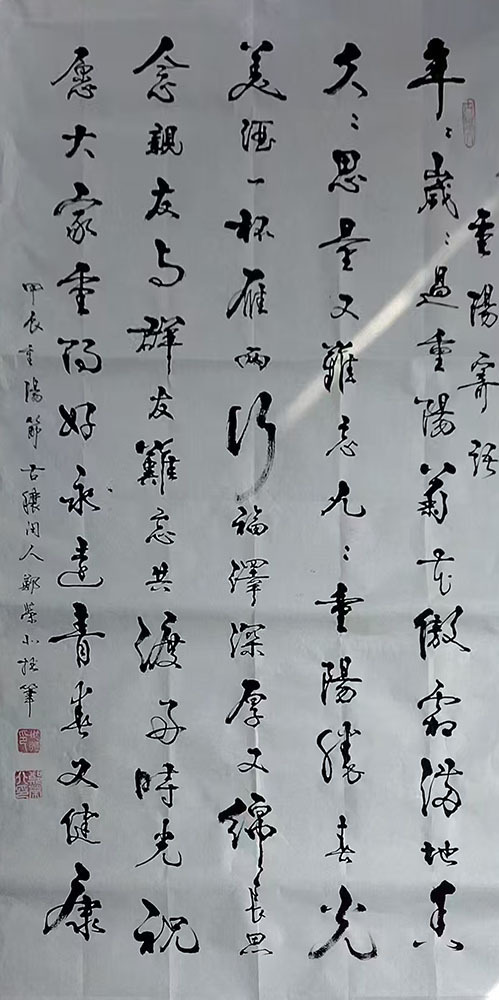 重陽寄語
年〻歲〻過重陽菊花傲霜滿地黄
久〻思量又難忘九〻重陽勝春光
美酒一杯雁兩行福澤深厚又綿長思
念親友与群友難忘共渡好時光祝
愿大家重陽好永遠青春又健康
甲辰重陽節古穰闲人鄭榮小拙筆